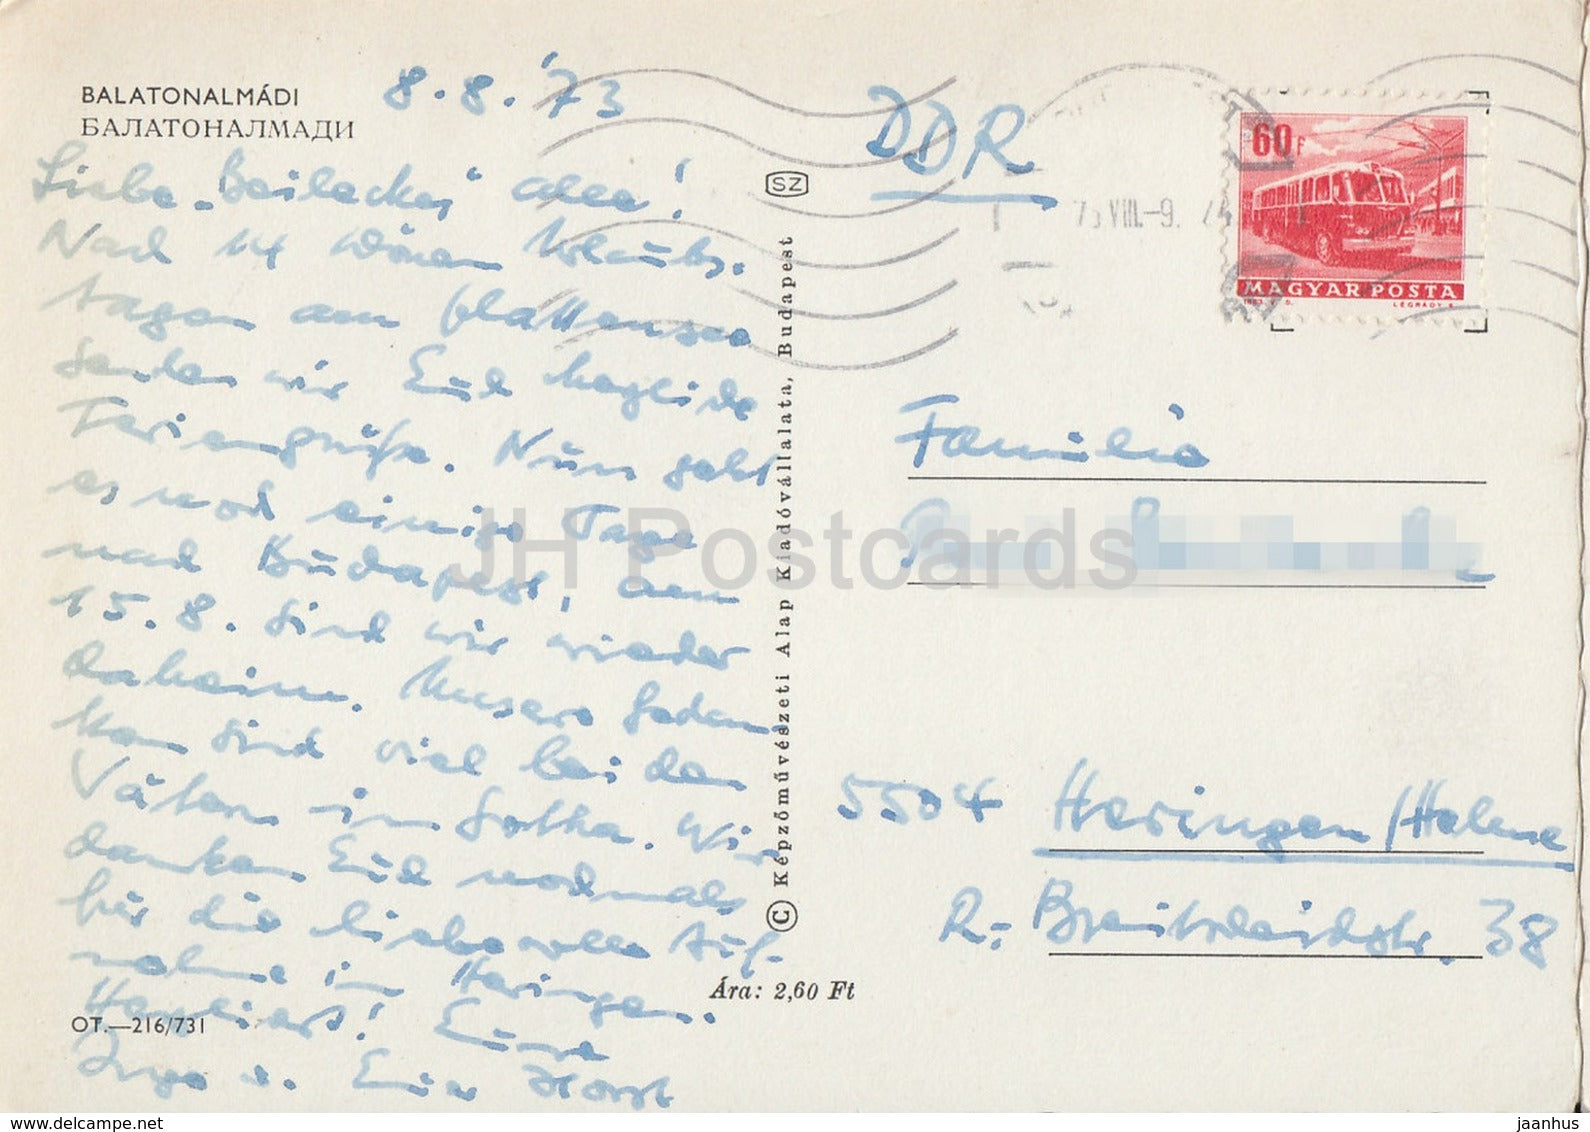 BALATONALMÁDI
БАЛАТОНАЛМАДИ
8.8.'73
Liebe "Beilecke's" alle!
Nach 14 schönen Urlaubs-
tagen am Plattensee
senden wir Euch herzliche
Feriengrüße. Nun geht
es noch einige Tage
nach Budapest, am
15.8. sind wir wieder
daheim. Unsere Gedan-
ken sind viel bei den
Vätern in Gotha. Wir
danken Euch nochmals
für die liebevolle Auf-
nahme in Heringen.
Herzlichst! Eure
Inge u. Euer Horst
OT.—216/731
SZ
© Képzőművészeti Alap Kiadóvállalata, Budapest
Ára: 2,60 Ft
DDR
VIII.-9.
60f
MAGYAR POSTA
LÉGRÁDY S.
Familie
5504 Heringen/Helme
R.- Breitscheidstr. 38
JH Postcards
www.delcampe.net
jaanhus